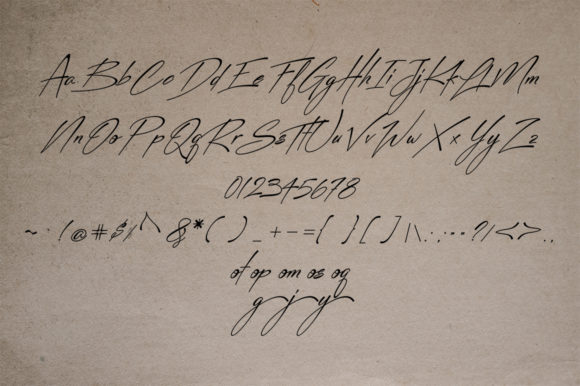 Aa Bb Cc Dd Ee Ff Gg Hh Ii Jj Kk Ll Mm
Nn Oo Pp Qq Rr Ss Tt Uu Vv Ww Xx Yy Zz
012345678
~ · ! @ # $ % ^ & * ( ) _ + - = { } [ ] | \ : ; " ' ? / < > . ,
ot op om os oq
g j y